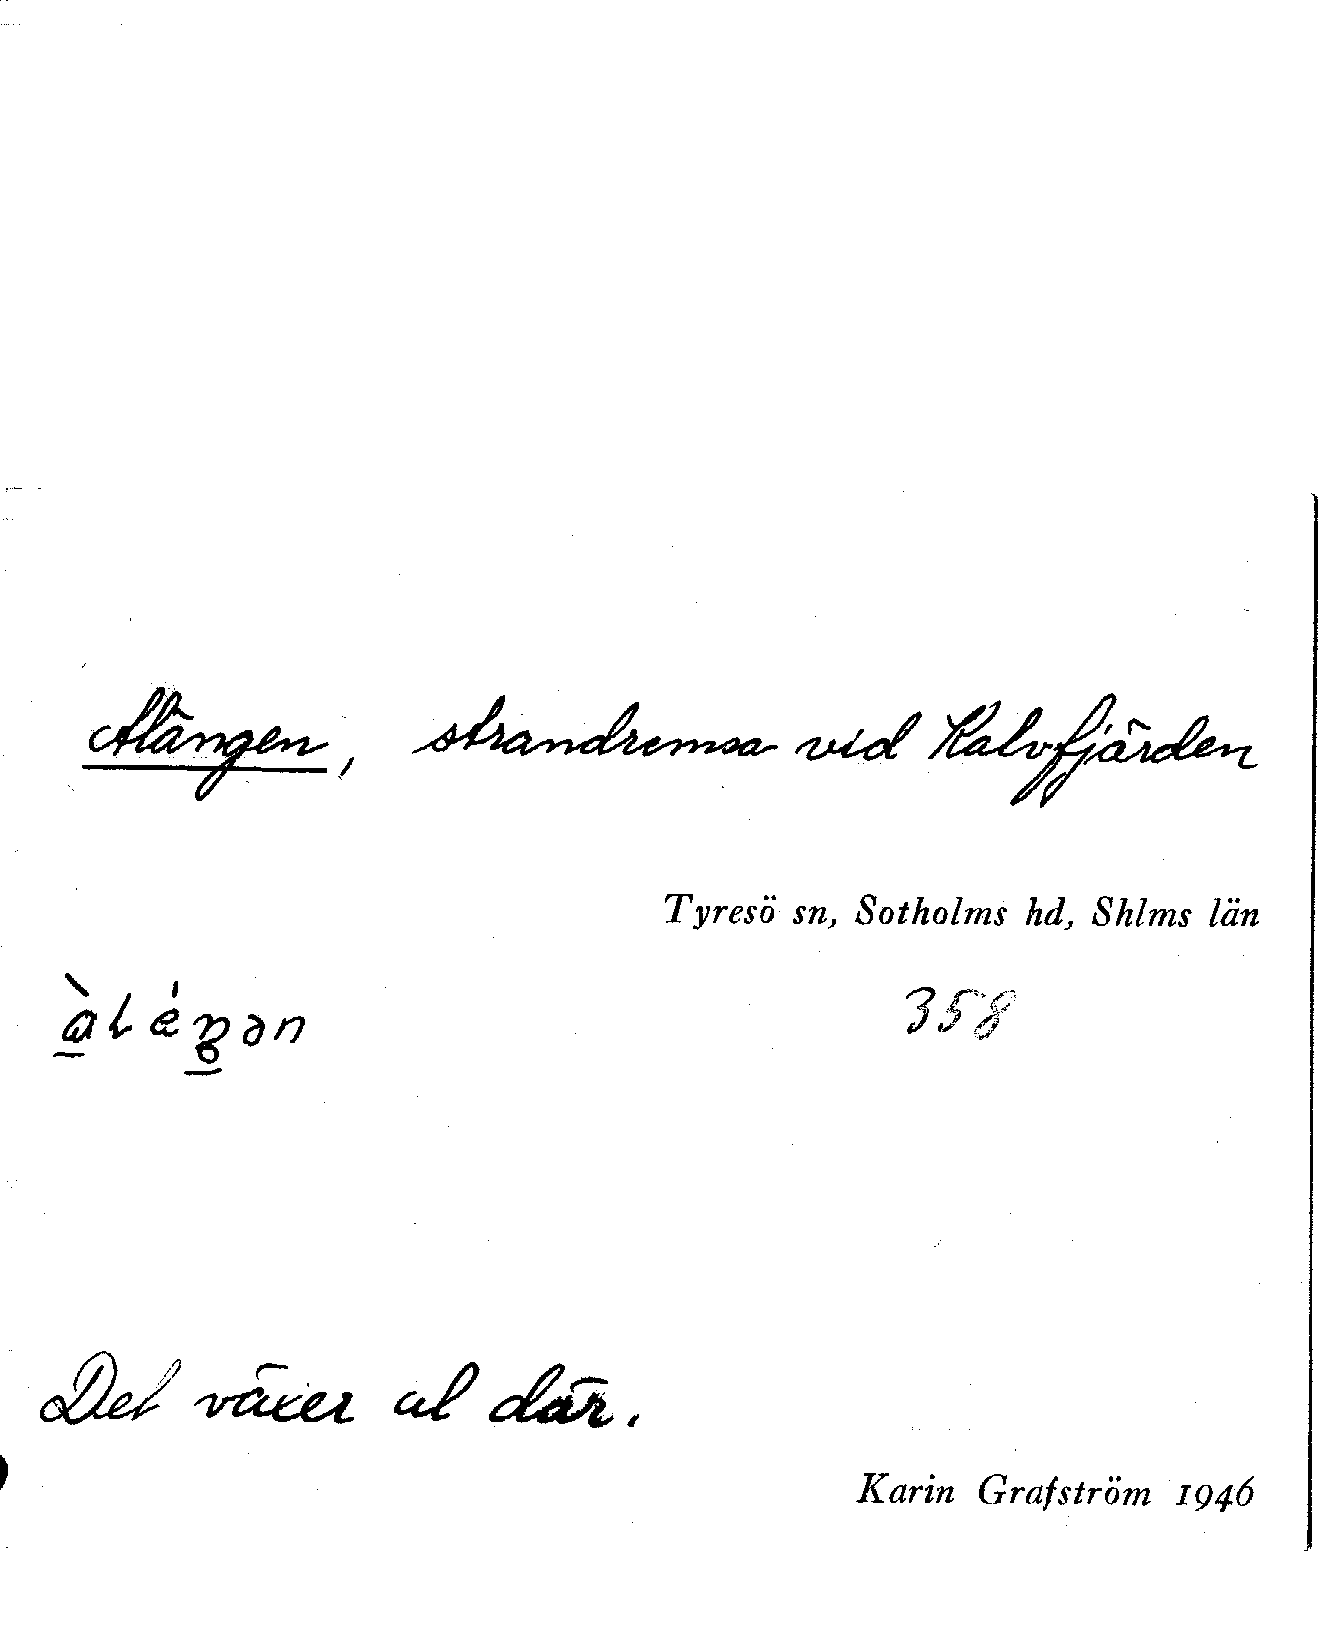 Alängen, strandremsa vid Kalvfjärden
Tyresö sn, Sotholms hd, Shlms län
358
Det växer al där.
Karin Grafström 1946